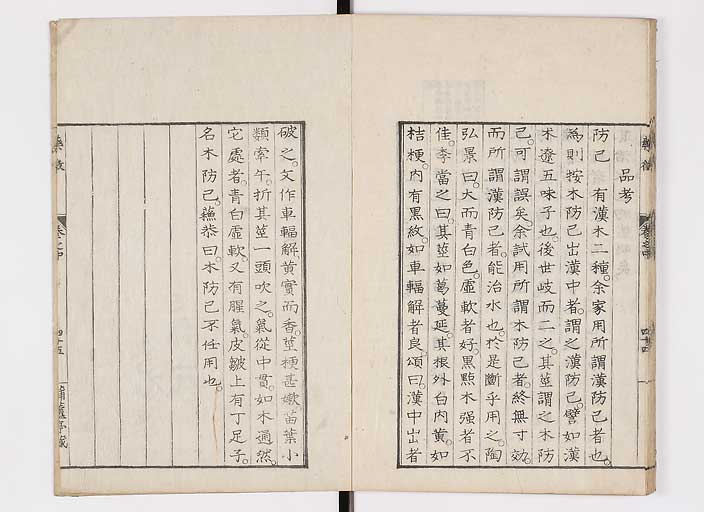 品考
防己 有漢木二種。余家用所謂漢防己者也。
為則按木防己出漢中者。謂之漢防己。譬如漢
朮遼五味子也。後世岐而二之。其莖謂之木防
己。可謂誤矣。余試用所謂木防己者。終無寸効。
而所謂漢防己者。能治水也。於是斷乎用之。陶
弘景曰。大而青白色。虛軟者好。黑點木强者不
佳。李當之曰。其莖如葛蔓延。其根外白内黄。如
桔梗。内有黑紋。如車輻解者良。頌曰。漢中出者
破之。文作車輻解。黄實而香。莖梗甚嫩。苗葉小
類牽牛。折其莖一頭吹之。氣從中貫。如木通然。
它處者。青白虛軟。又有腥氣。皮皺上有丁足子。
名木防己。蘓恭曰。木防己不任用也。
卷之中
四十五